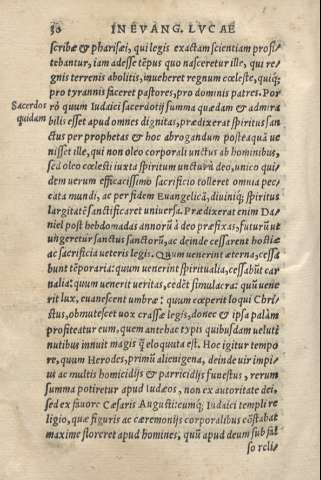 30 IN EVANG. LVCAE
scribæ & pharisæi, qui legis exactam scientiam profi⸗
tebantur, iam adesse tēpus quo nasceretur ille, qui re⸗
gnis terrenis abolitis, inueheret regnum cœleste, quiq;
pro tyrannis faceret pastores, pro dominis patres. Por
Sacerdos
quidam
rò quum Iudaici sacerdotij summa quædam & admira
bilis esset apud omnes dignitas, prædixerat spiritus san
ctus per prophetas & hoc abrogandum posteaquā ue
nisset ille, qui non oleo corporali unctus ab hominibus,
sed oleo cœlesti iuxta spiritum uncturā deo, unico qui
dem uerum efficacissimo sacrificio tolleret omnia pec
cata mundi, ac per fidem Euangelicā, diuiniq; spiritus
largitatē sanctificaret uniuersa. Prædixerat enim Da
niel post hebdomadas annorū à deo præfixas, futurū ut
ungeretur sanctus sanctorū, ac deinde cessarent hostiæ
ac sacrificia ueteris legis. Quum uenerint æterna, cessa
bunt tēporaria: quum uenerint spiritualia, cessabūt car
nalia: quum uenerit ueritas, cedēt simulacra: quū uene
rit lux, euanescent umbræ: quum cœperit loqui Chri
stus, obmutescet uox crassæ legis, donec & ipsa palàm
profiteatur eum, quem antehac typis quibusdam uelutē
nutibus innuit magis q̄ eloquuta est. Hoc igitur tempo
re, quum Herodes, primū alienigena, deinde uir impi⸗
us ac multis homicidijs & parricidijs funestus, rerum
summa potiretur apud Iudæos, non ex autoritate dei,
sed ex fauore Cæsaris Augusti: cumq; Iudaici templi re
ligio, quæ figuris ac cæremonijs corporalibus cōstabat
maxime floreret apud homines, quū apud deum sub fal
so reli⸗